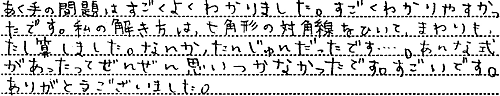 あく手の問題はすごくよくわかりました。すごくわかりやすかっ
たです。私の解き方は、七角形の対角線をひいて、まわりも、
たし算しました。なんか、たんじゅんだったです…。あんな式
があったってぜんぜん思いつかなかったです。すごいです。
ありがとうございました。